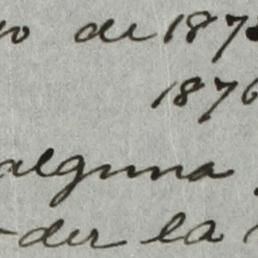 de 187
1876
alguna
der la